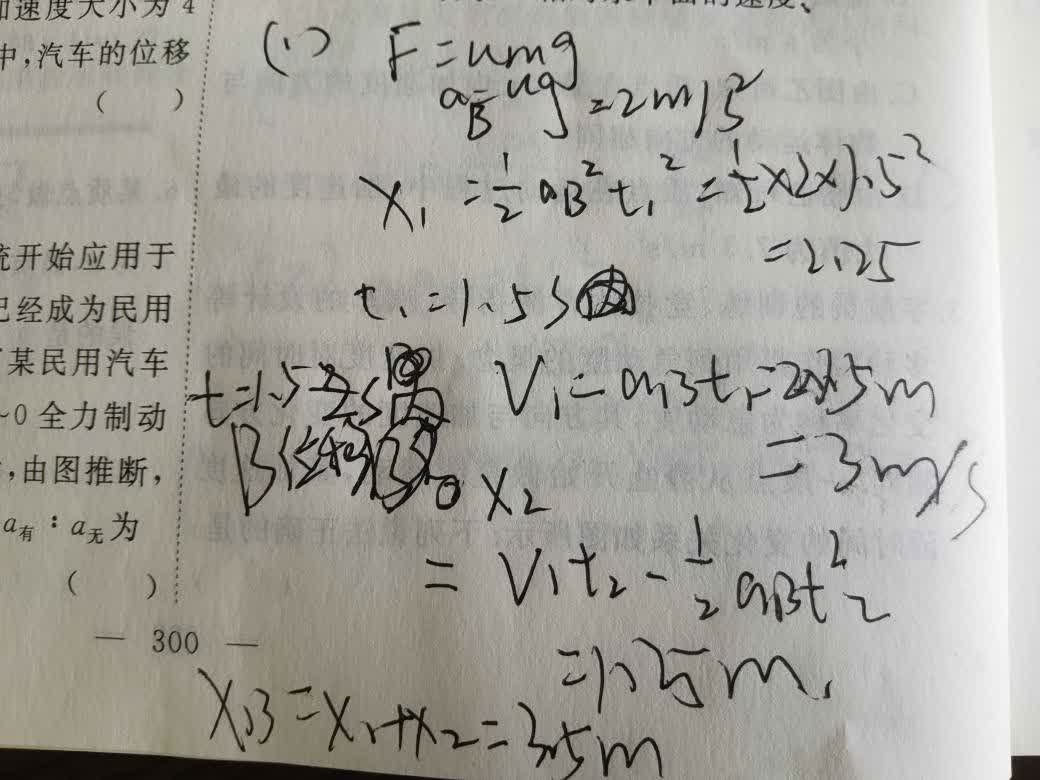 加速度大小为 4
中,汽车的位移
(    )
统开始应用于
已经成为民用
某民用汽车
~0 全力制动
,由图推断,
a有 : a无为
(    )
— 300 —
(1) F=umg
aB=ug=2m/s²
x₁=½aB²t₁²=½×2×1.5²
=2.25
t₁=1.5s
t=1.5~2s
V₁=aBt₁=2×1.5m
=3m/s
x₂
=V₁t₂-½aBt₂²
=1.25m.
XB=x₁+x₂=3.5m